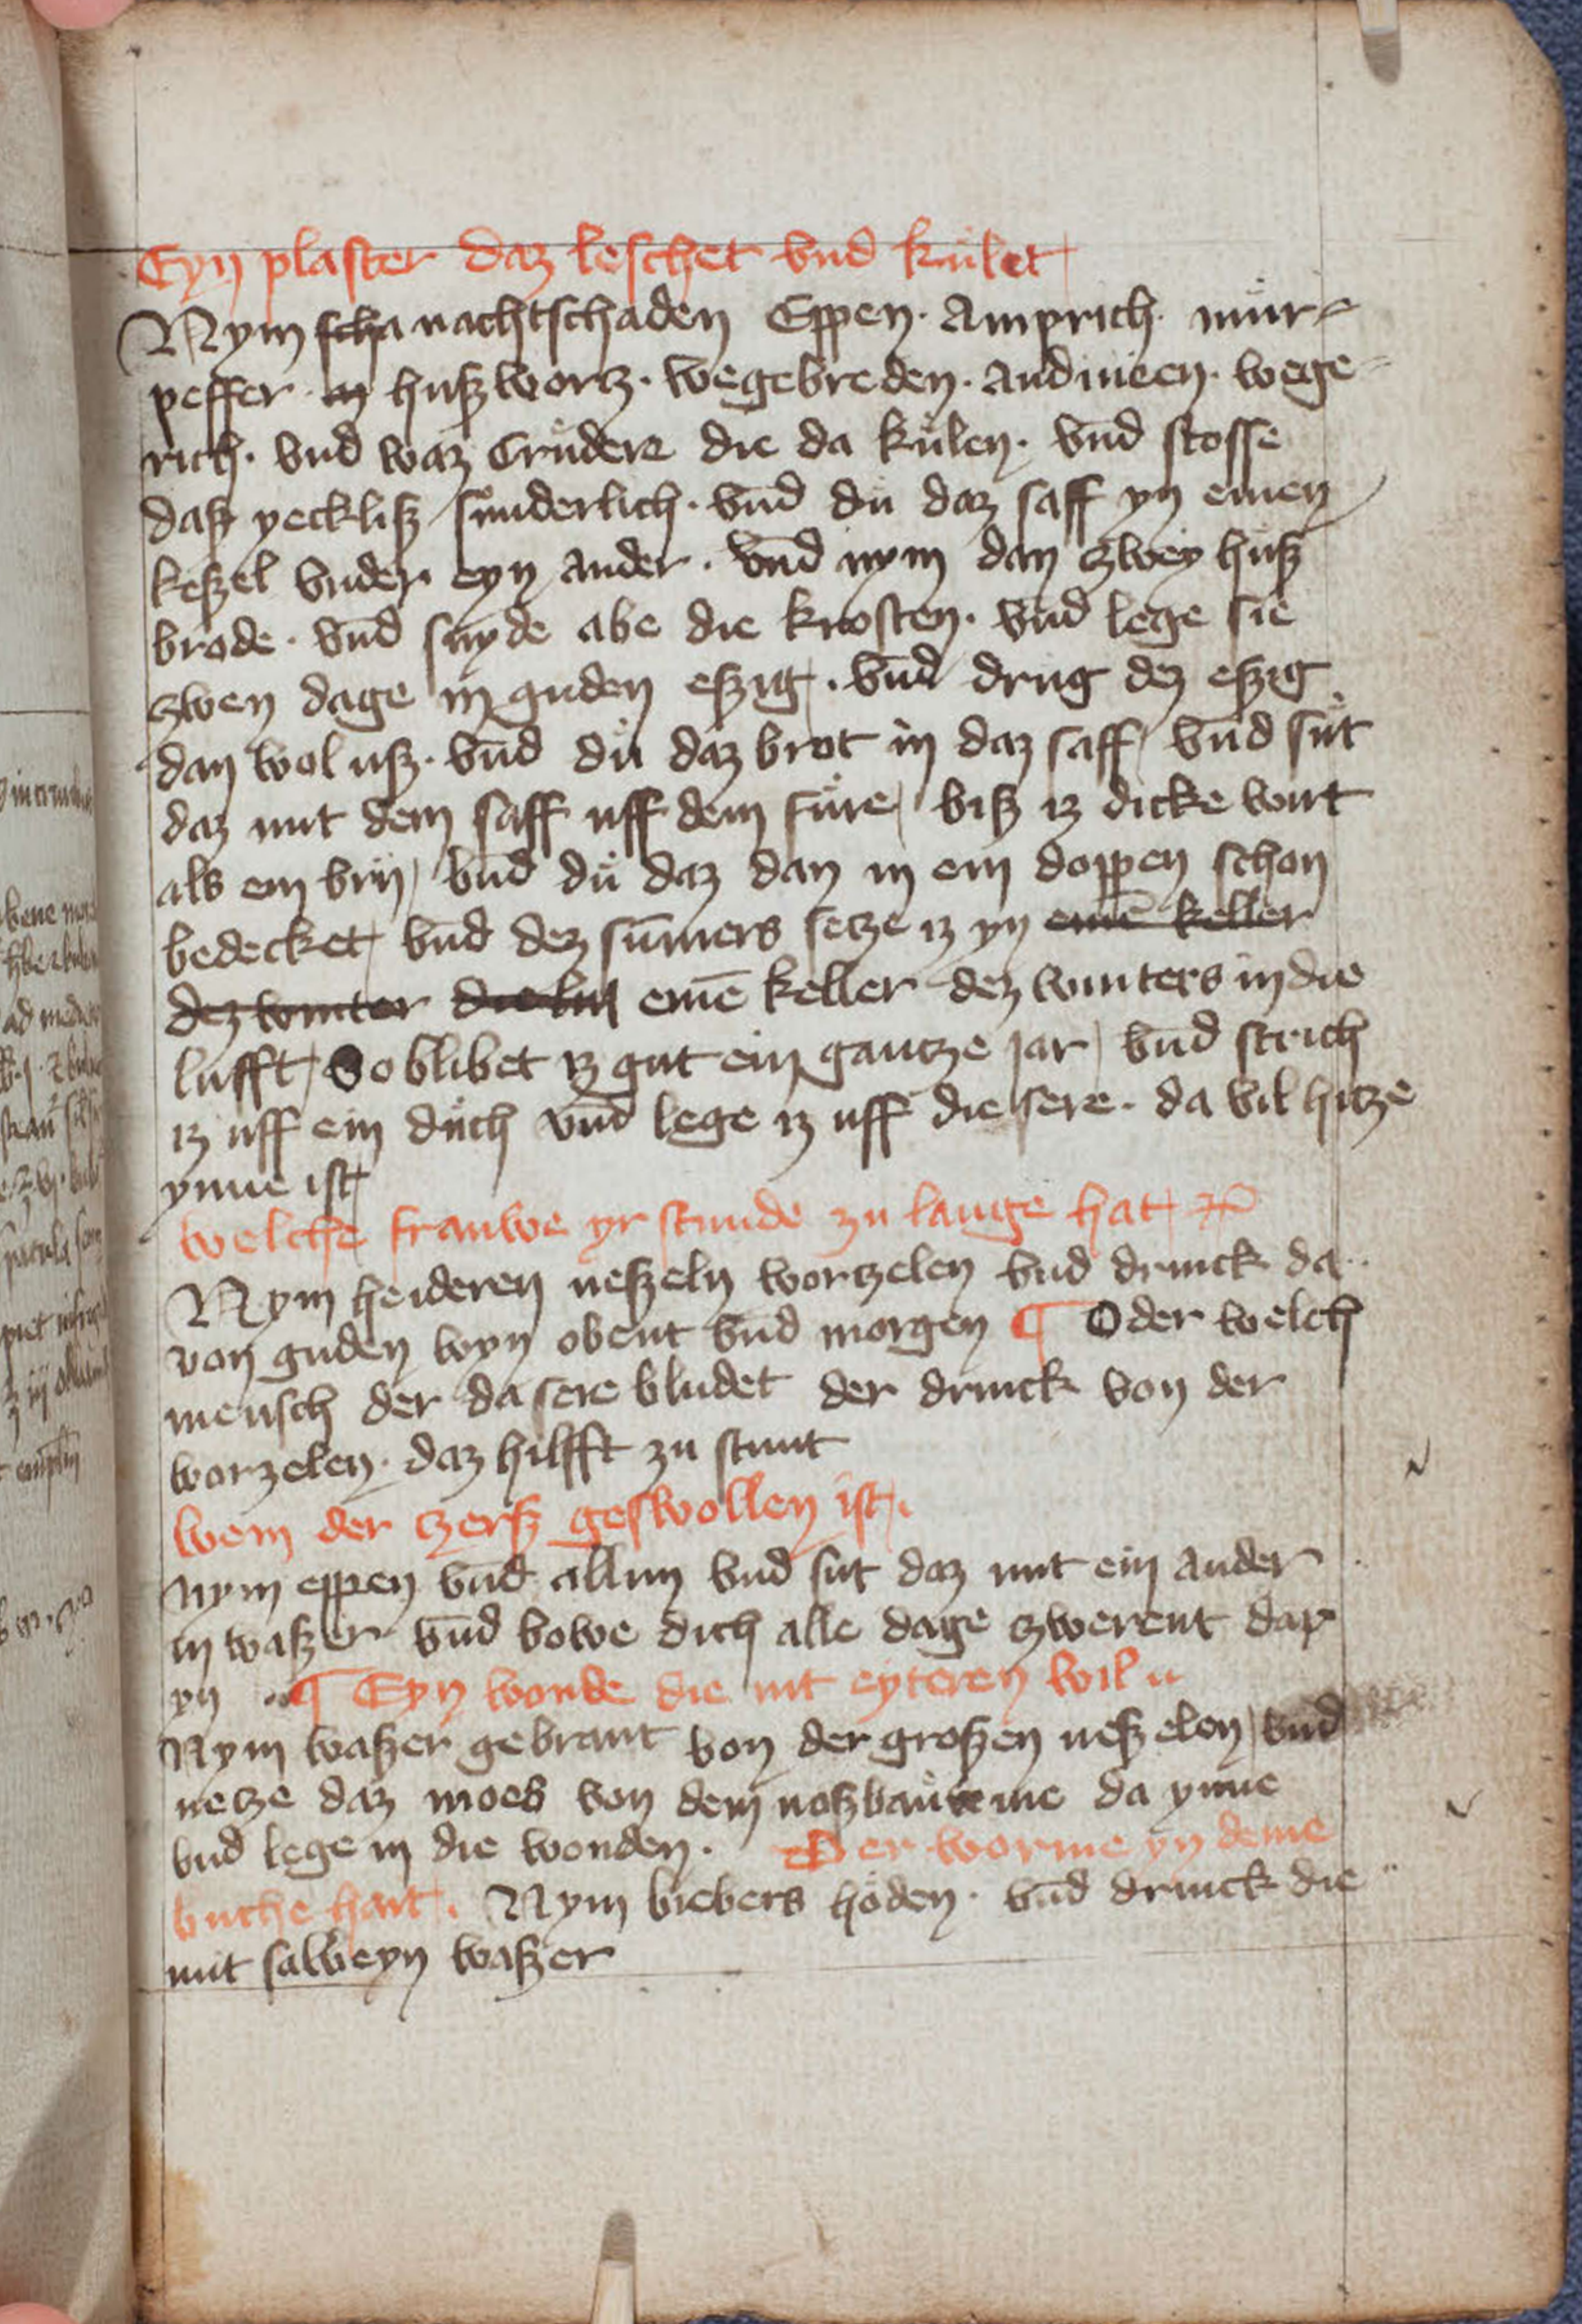 Eyn plaster daz leschet vnd kůlet
Nym scha nachtschaden Eppen · Amprich · můr-
peffer · in hußworz · wegebreden · Andiuien · wege-
rich · vnd waz Crůdere die da kůlen · vnd stosse
daß yeckliß sůnderlich · vnd dů daz saff yn einen
keßel vnder eyn ander · vnd nym dan zwey huß
brode · vnd snyde abe die krosten · vnd lege sie
zwen dage in guden eßig · vnd drug dez eßig
dan wol uß · vnd dů daz brot in daz saff vnd sůt
daz mit dem saff uff dem fůre biß iz dicke wirt
als ein brij vnd dů daz dan in ein doppen schon
bedecket vnd dez sūmers setze iz yn einē keller
dez winter die lufft einē keller dez winters in die
lufft So blibet iz gut ein gantze jar vnd strich
iz uff ein důch vnd lege iz uff die sere · da vil hitze
ynne ist
welche frauwe yr stunde zu lange hat
Nym heideren neßeln wortzelen vnd drinck da
von guden wyn obent vnd morgen ¶ Oder welch
mensch der da sere bludet der drinck von der
worzelen · daz hilfft zu stunt
wem der zerß geswollen ist ·
Nym eppen vnd allun vnd sut daz mit ein ander
in waßer vnd bowe dich alle dage zwerent dar
yn ¶ Eyn wonde die nit eyteren wil
Nym waßer gebrant von der großen neßelen vnd
netze daz moes von dem noßbaůme da ynne
vnd lege in die wonden · Der worme yn deme
buche hait · Nym biebers hoden · vnd drinck die
mit salbeyn waßer